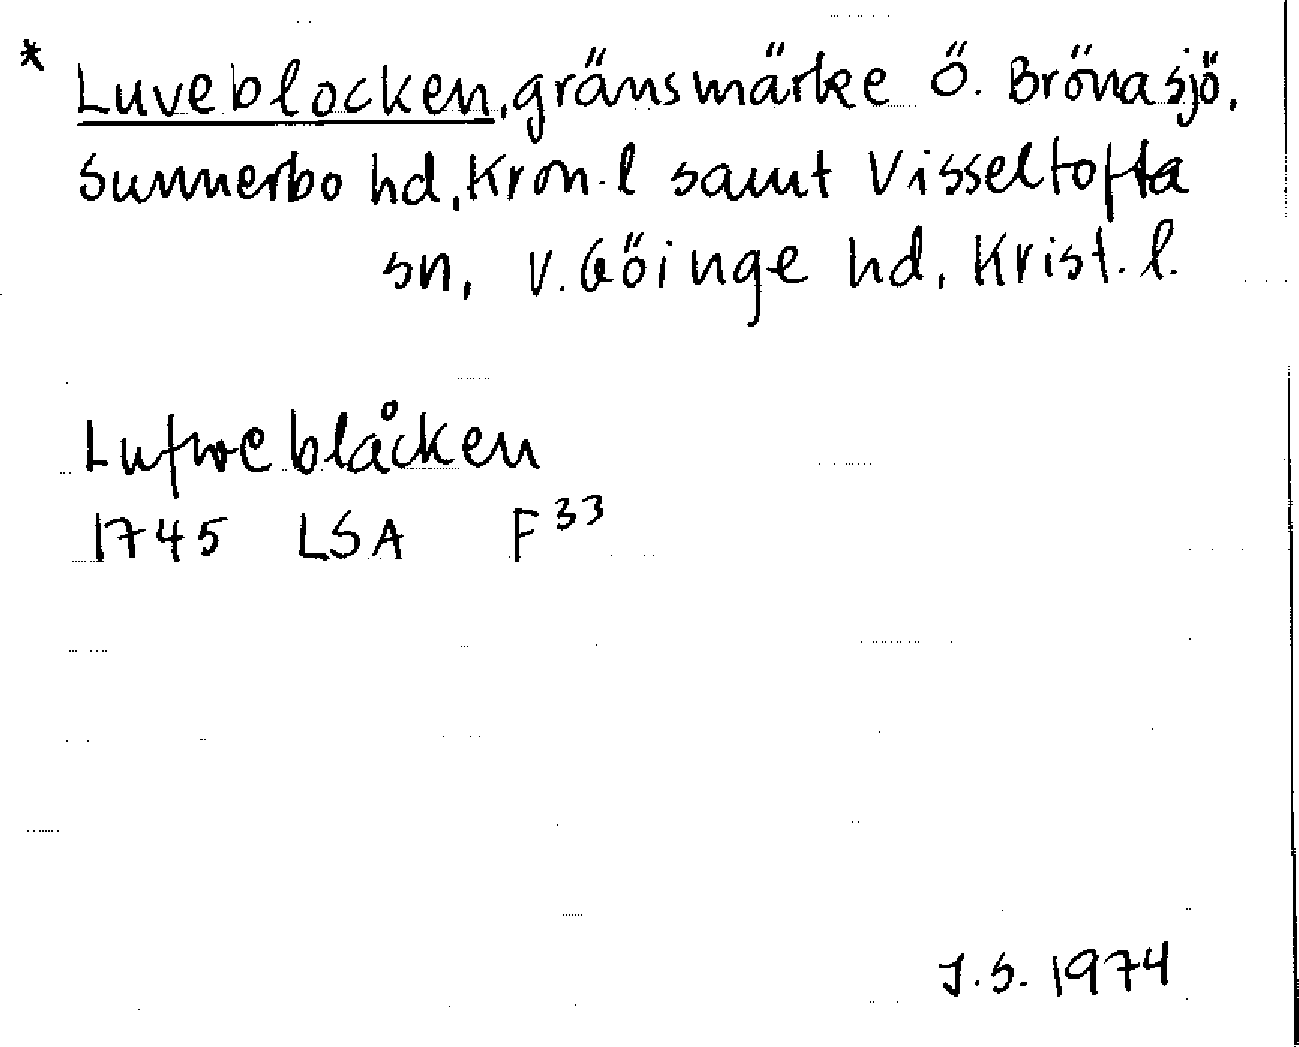 * Luveblocken, gränsmärke Ö. Brönasjö,
Sunnerbo hd, Kron. l samt Visseltofta
sn, V. Göinge hd, Krist. l.
Lufwe blåcken
1745 LSA F³³
J.S. 1974